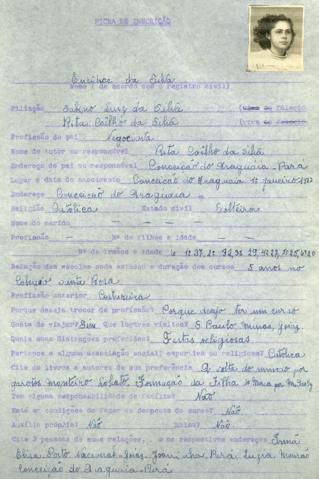 FICHA DE INSCRIÇÃO
da Silva
Nome ( de acordo com o registro civil)
Filiação Luiz da Silva
Rita Coêlho da Silva
Profissão do pai Negociante
Nome do tutor ou responsável Rita Coêlho da Silva
Endereço do pai ou responsável Conceição do Araguaia - Pará
Lugar e data do nascimento Conceição do Araguaia 12 janeiro
Endereço Conceição do Araguaia
Religião Católica Estado civil Solteira
Nome do marido —
Profissão — Nº de filhos e idade —
Nº de irmãos e idade
Relação das escolas onde estudou e duração dos cursos 5 anos no
Colégio Santa Rosa
Profissão anterior Costureira
Porque deseja trocar de profissão? Porque desejo ter um curso
Gosta de viajar? Sim Que lugares visitou? S. Paulo Minas, Goiaz
Quais suas distrações preferidas? Festas religiosas
Pertence a alguma associação social, esportiva ou religiosa? Católica
Cite os livros e autores de sua preferência A volta do mundo por
Monteiro Lobato. Formação da Filha
Tem alguma responsabilidade de família? Não
Está em condições de fazer as despesas do curso? Não
Auxílio próprio? Não Bolsa? Não
Cite 3 pessoas de suas relações, e os respectivos endereços Irmã
Porto Nacional - Goiaz, Pará, Luzia Mourão
Conceição do Araguaia - Pará